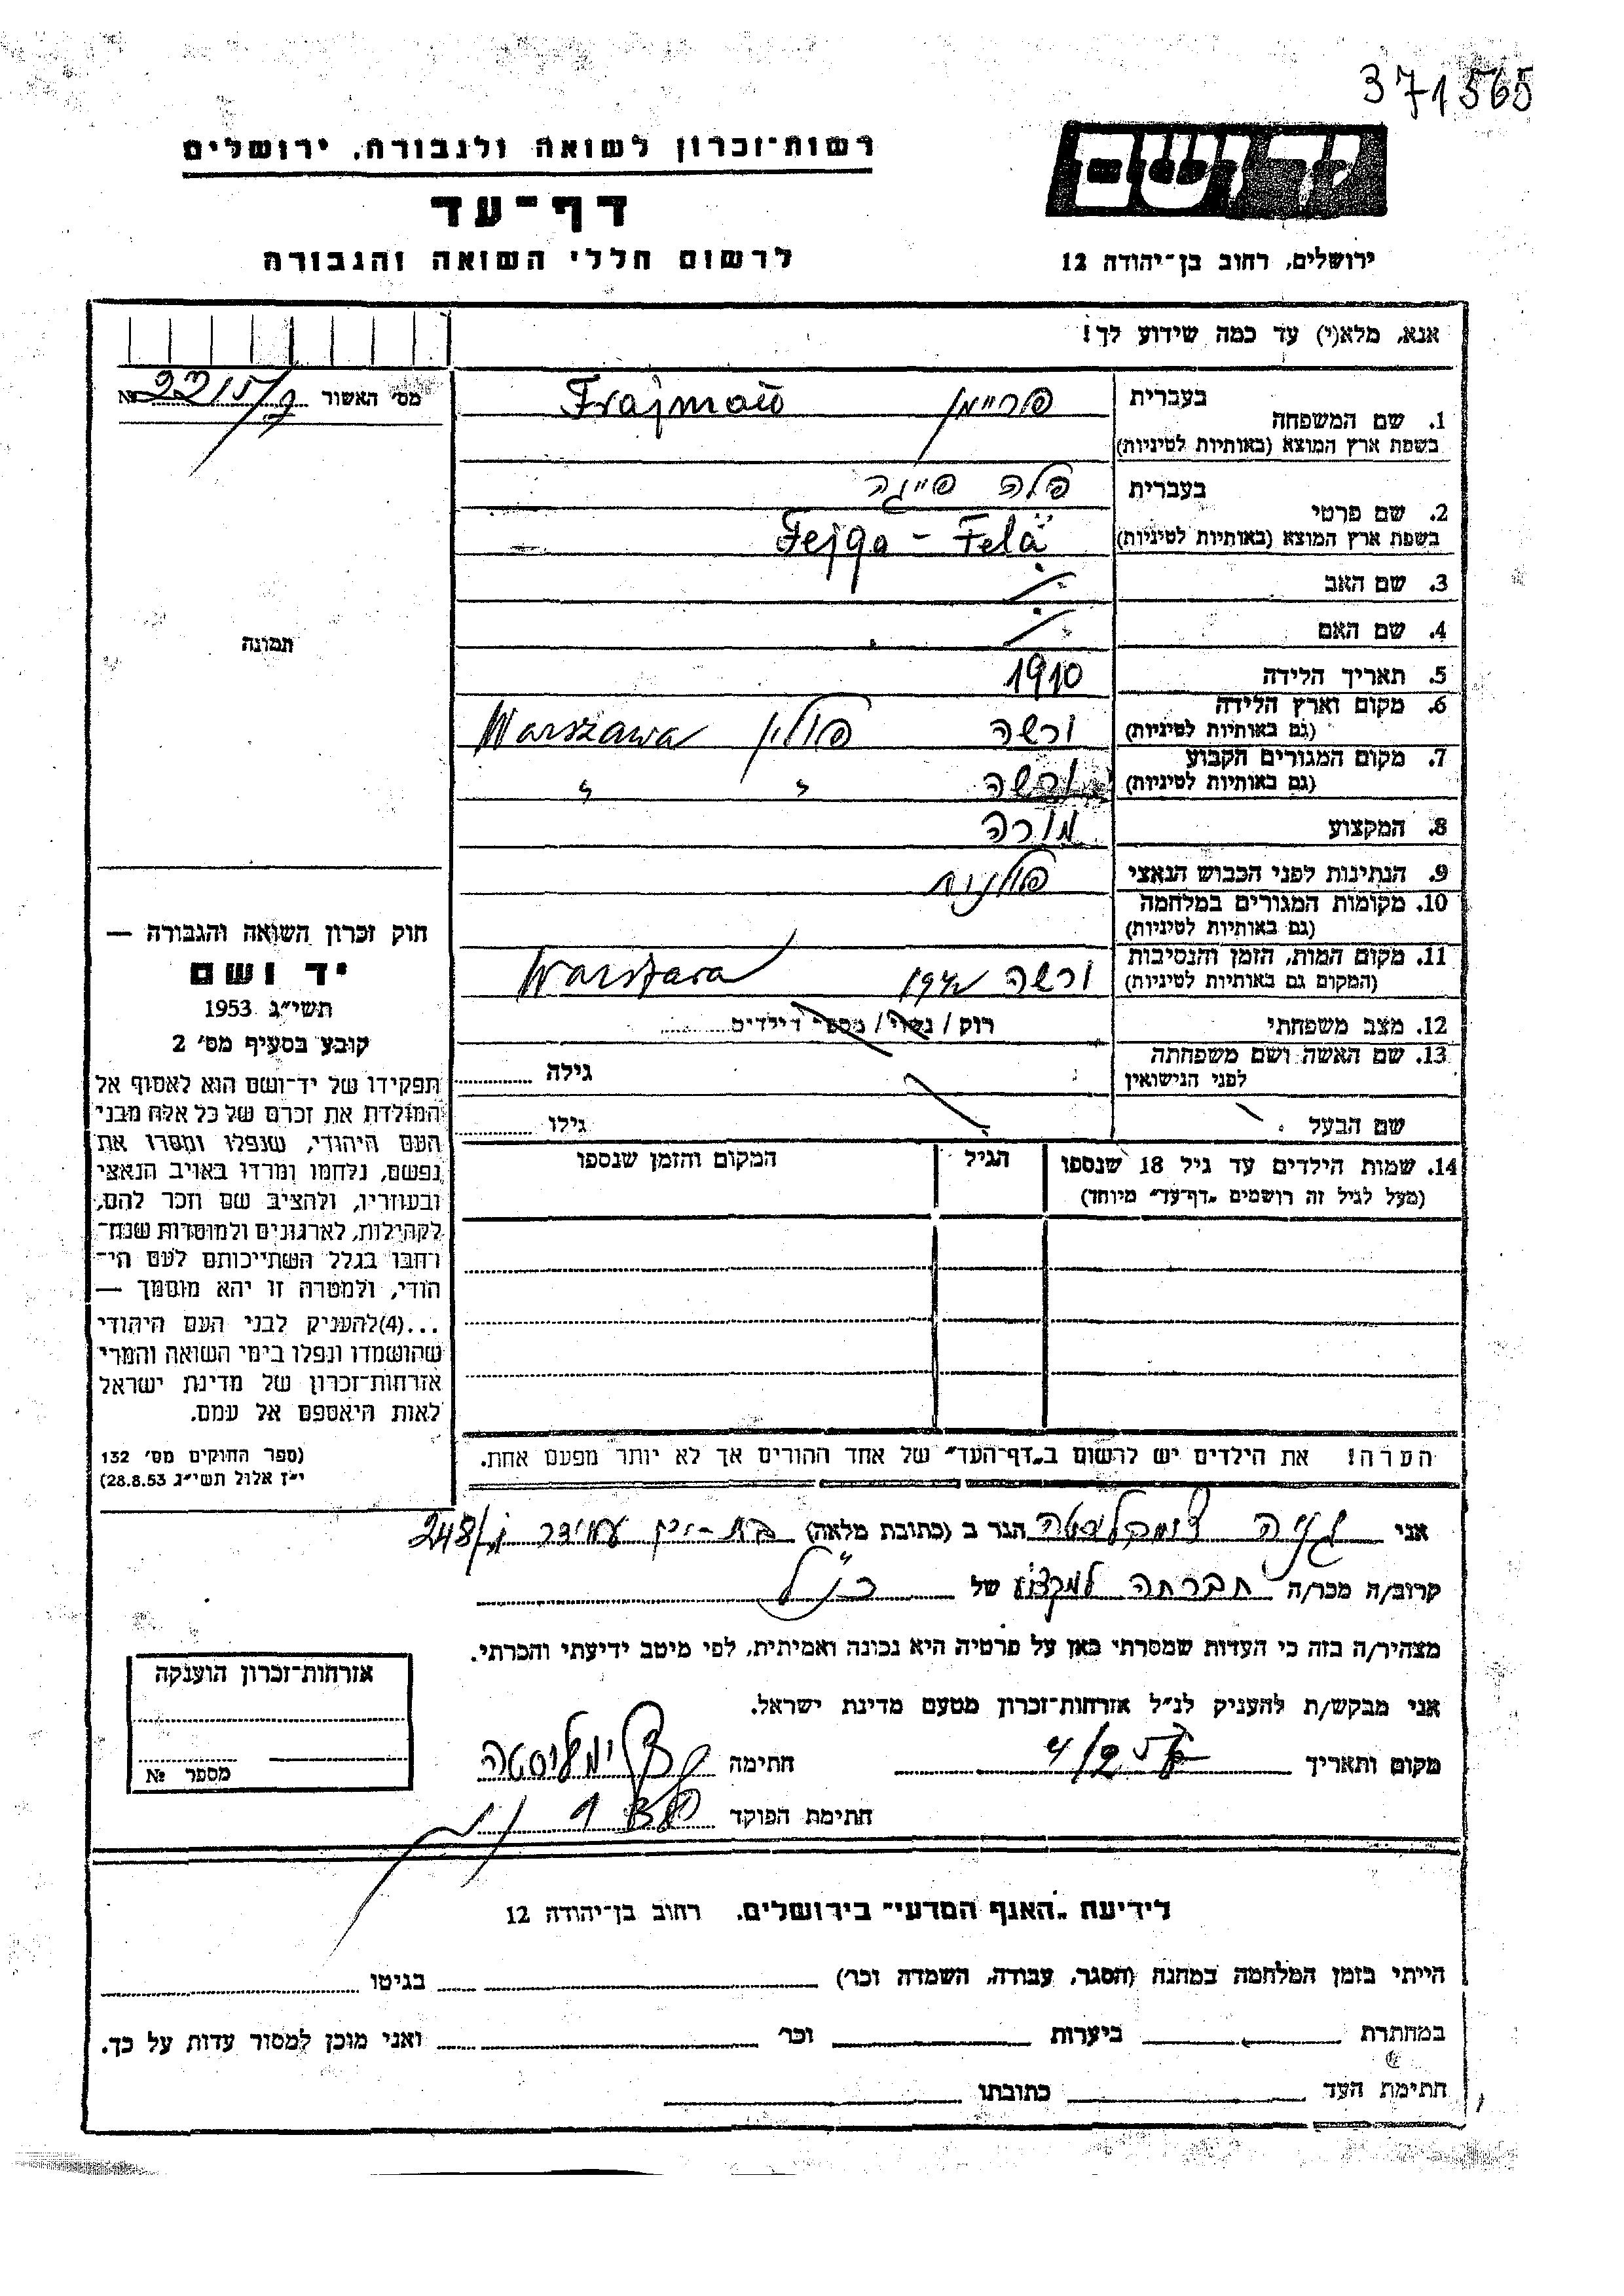 371565
רשות־זכרון לשואה ולגבורה, ירושלים
יד ושם
דף־עד
לרשום חללי השואה והגבורה
ירושלים, רחוב בן־יהודה 12
אנא, מלא(י) עד כמה שידוע לך!
מס׳ האשור №
1. שם המשפחה
בעברית
בשפת ארץ המוצא (באותיות לטיניות)
פריימן Frajman
2. שם פרטי
בעברית
בשפת ארץ המוצא (באותיות לטיניות)
פלה פייגה
Fejga - Fela
3. שם האב
4. שם האם
5. תאריך הלידה 1910
6. מקום וארץ הלידה
(גם באותיות לטיניות)
ורשה פולין Warszawa
7. מקום המגורים הקבוע
(גם באותיות לטיניות)
ורשה " "
8. המקצוע מורה
9. הנתינות לפני הכבוש הנאצי פולנית
10. מקומות המגורים במלחמה
(גם באותיות לטיניות)
11. מקום המות, הזמן והנסיבות
(המקום גם באותיות לטיניות)
ורשה 1942 Warszawa
12. מצב משפחתי רוק / נשוי / מספר הילדים
13. שם האשה ושם משפחתה
לפני הנישואין
גילה
שם הבעל גילו
14. שמות הילדים עד גיל 18 שנספו
(מעל לגיל זה רושמים „דף־עד״ מיוחד)
הגיל
המקום והזמן שנספו
הערה! את הילדים יש לרשום ב„דף־העד״ של אחד ההורים אך לא יותר מפעם אחת.
תמונה
חוק זכרון השואה והגבורה —
יד ושם
תשי״ג 1953
קובע בסעיף מס׳ 2
תפקידו של יד־ושם הוא לאסוף אל
המולדת את זכרם של כל אלה מבני
העם היהודי, שנפלו ומסרו את
נפשם, נלחמו ומרדו באויב הנאצי
ובעוזריו, ולהציב שם וזכר להם,
לקהילות, לארגונים ולמוסדות שנח־
רחבו בגלל השתייכותם לעם הי־
הודי, ולמטרה זו יהא מוסמך —
...(4)להעניק לבני העם היהודי
שהושמדו ונפלו בימי השואה והמרי
אזרחות־זכרון של מדינת ישראל
לאות היאספם אל עמם.
(ספר החוקים מס׳ 132
י״ז אלול תשי״ג 28.8.53)
אני גניה הגר ב (כתובת מלאה) בת-ים עמידר 248/
קרוב/ה מכר/ה חברתה למקצוע של כנ״ל
מצהיר/ה בזה כי העדות שמסרתי כאן על פרטיה היא נכונה ואמיתית, לפי מיטב ידיעתי והכרתי.
אני מבקש/ת להעניק לנ״ל אזרחות־זכרון מטעם מדינת ישראל.
מקום ותאריך חתימה
חתימת הפוקד
אזרחות־זכרון הוענקה
מספר №
לידיעת „האגף המדעי״ בירושלים, רחוב בן־יהודה 12
הייתי בזמן המלחמה במחנה (הסגר, עבודה, השמדה וכר׳) בגיטו
במחתרת ביערות וכר׳ ואני מוכן למסור עדות על כך.
חתימת העד כתובתו